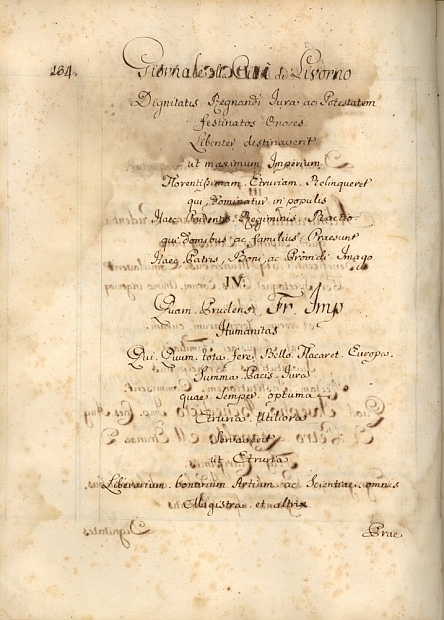 184.
Giornale della Città di Livorno
Dignitatis Regnandi Jura ac Potestatem
festinatos Onores
Libenter destinaverit
ut maximum Imperium
Florentissimam Etruriam Relinqueret
qui dominatur in populis
Haec Prudentis Regiminis Practio
qui domibus ac familius Praesunt
Haeg Patris, Boni, ac Providi Imago
IV.
Quam Prudens Fr. Imp
Humanitas
Qui Quum tota fere Bello Flacaret Europa.
Summa Pacis Jura
quae Semper optuma
Etruria Utiliora
Servaverit
ut Etruria
Liberarium bonarium Artium ac Scientiae omnes
Magistra et altrix
Prae